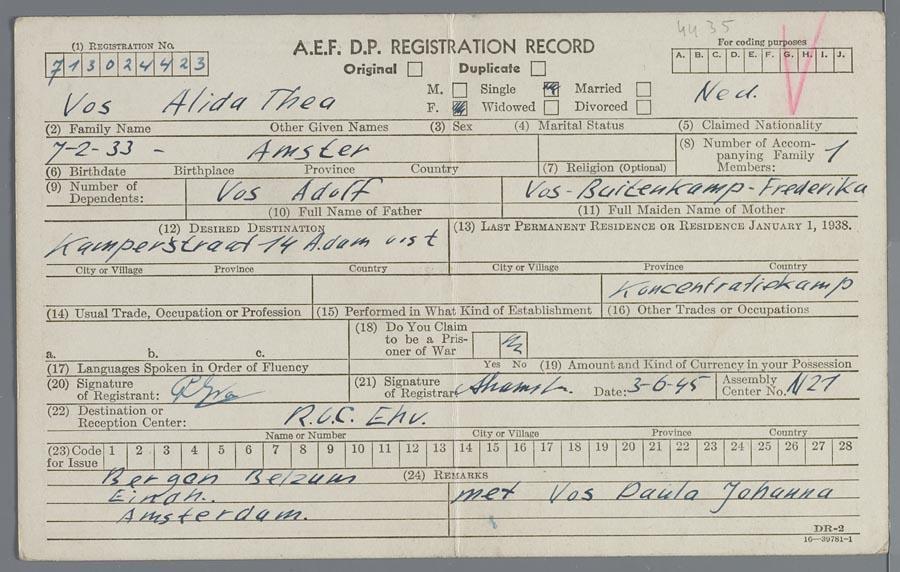 4435
(1) Registration No.
A.E.F. D.P. REGISTRATION RECORD
For coding purposes
713024423
Original Duplicate
A. B. C. D. E. F. G. H. I. J.
M. Single Married
Vos Alida Thea
F. Widowed Divorced
Ned.
(2) Family Name Other Given Names (3) Sex (4) Marital Status (5) Claimed Nationality
7-2-33 - Amster
(8) Number of Accompanying Family Members: 1
(6) Birthdate Birthplace Province Country (7) Religion (Optional)
(9) Number of Dependents:
Vos Adolf
Vos-Buitenkamp-Frederika
(10) Full Name of Father (11) Full Maiden Name of Mother
(12) Desired Destination (13) Last Permanent Residence or Residence January 1, 1938.
Kamperstraat 14 A.dam
City or Village Province Country City or Village Province Country
Koncentratiekamp
(14) Usual Trade, Occupation or Profession (15) Performed in What Kind of Establishment (16) Other Trades or Occupations
(18) Do You Claim to be a Prisoner of War
a. b. c. Yes No
(17) Languages Spoken in Order of Fluency (19) Amount and Kind of Currency in your Possession
(20) Signature of Registrant:
(21) Signature of Registrar:
Date: 3-6-45 Assembly Center No. N21
(22) Destination or Reception Center: R.v.C. Ehv.
Name or Number City or Village Province Country
(23) Code for Issue 1 2 3 4 5 6 7 8 9 10 11 12 13 14 15 16 17 18 19 20 21 22 23 24 25 26 27 28
Bergan Belzum (24) Remarks
Eindh.. met Vos Paula Johanna
Amsterdam.
DR-2
16—39781-1